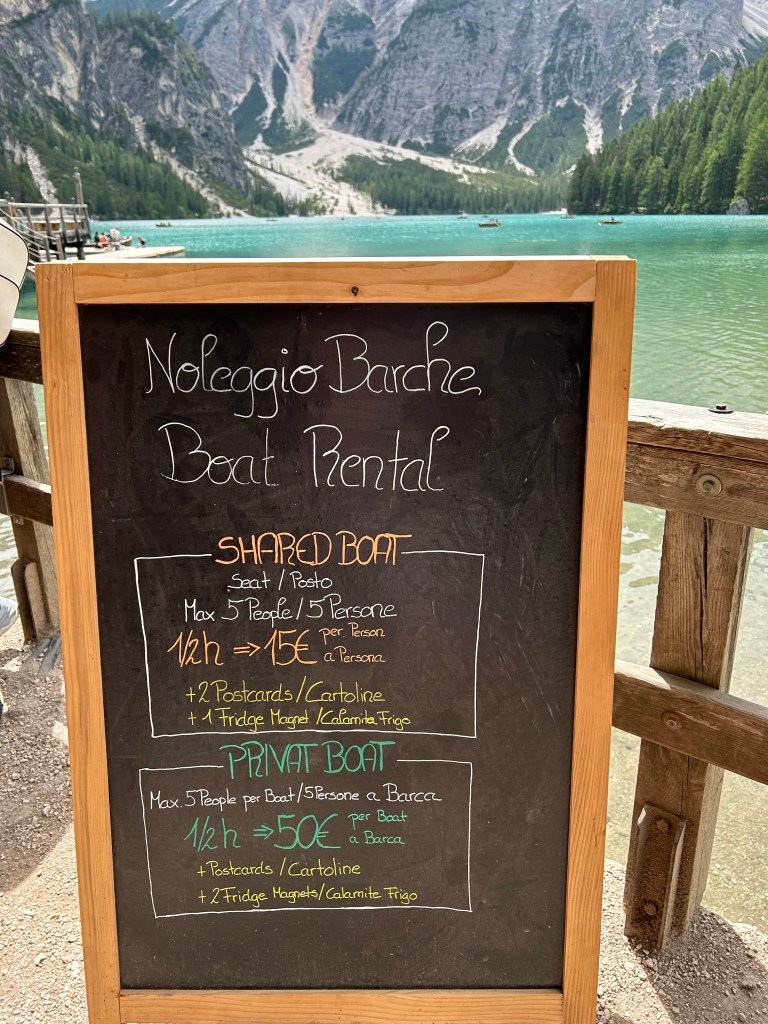 Noleggio Barche
Boat Rental
SHARED BOAT
Seat / Posto
Max 5 People / 5 Persone
1/2 h ⇒ 15€ per Person
a Persona
+ 2 Postcards / Cartoline
+ 1 Fridge Magnet / Calamita Frigo
PRIVAT BOAT
Max. 5 People per Boat / 5 Persone a Barca
1/2 h ⇒ 50€ per Boat
a Barca
+ Postcards / Cartoline
+ 2 Fridge Magnets / Calamite Frigo